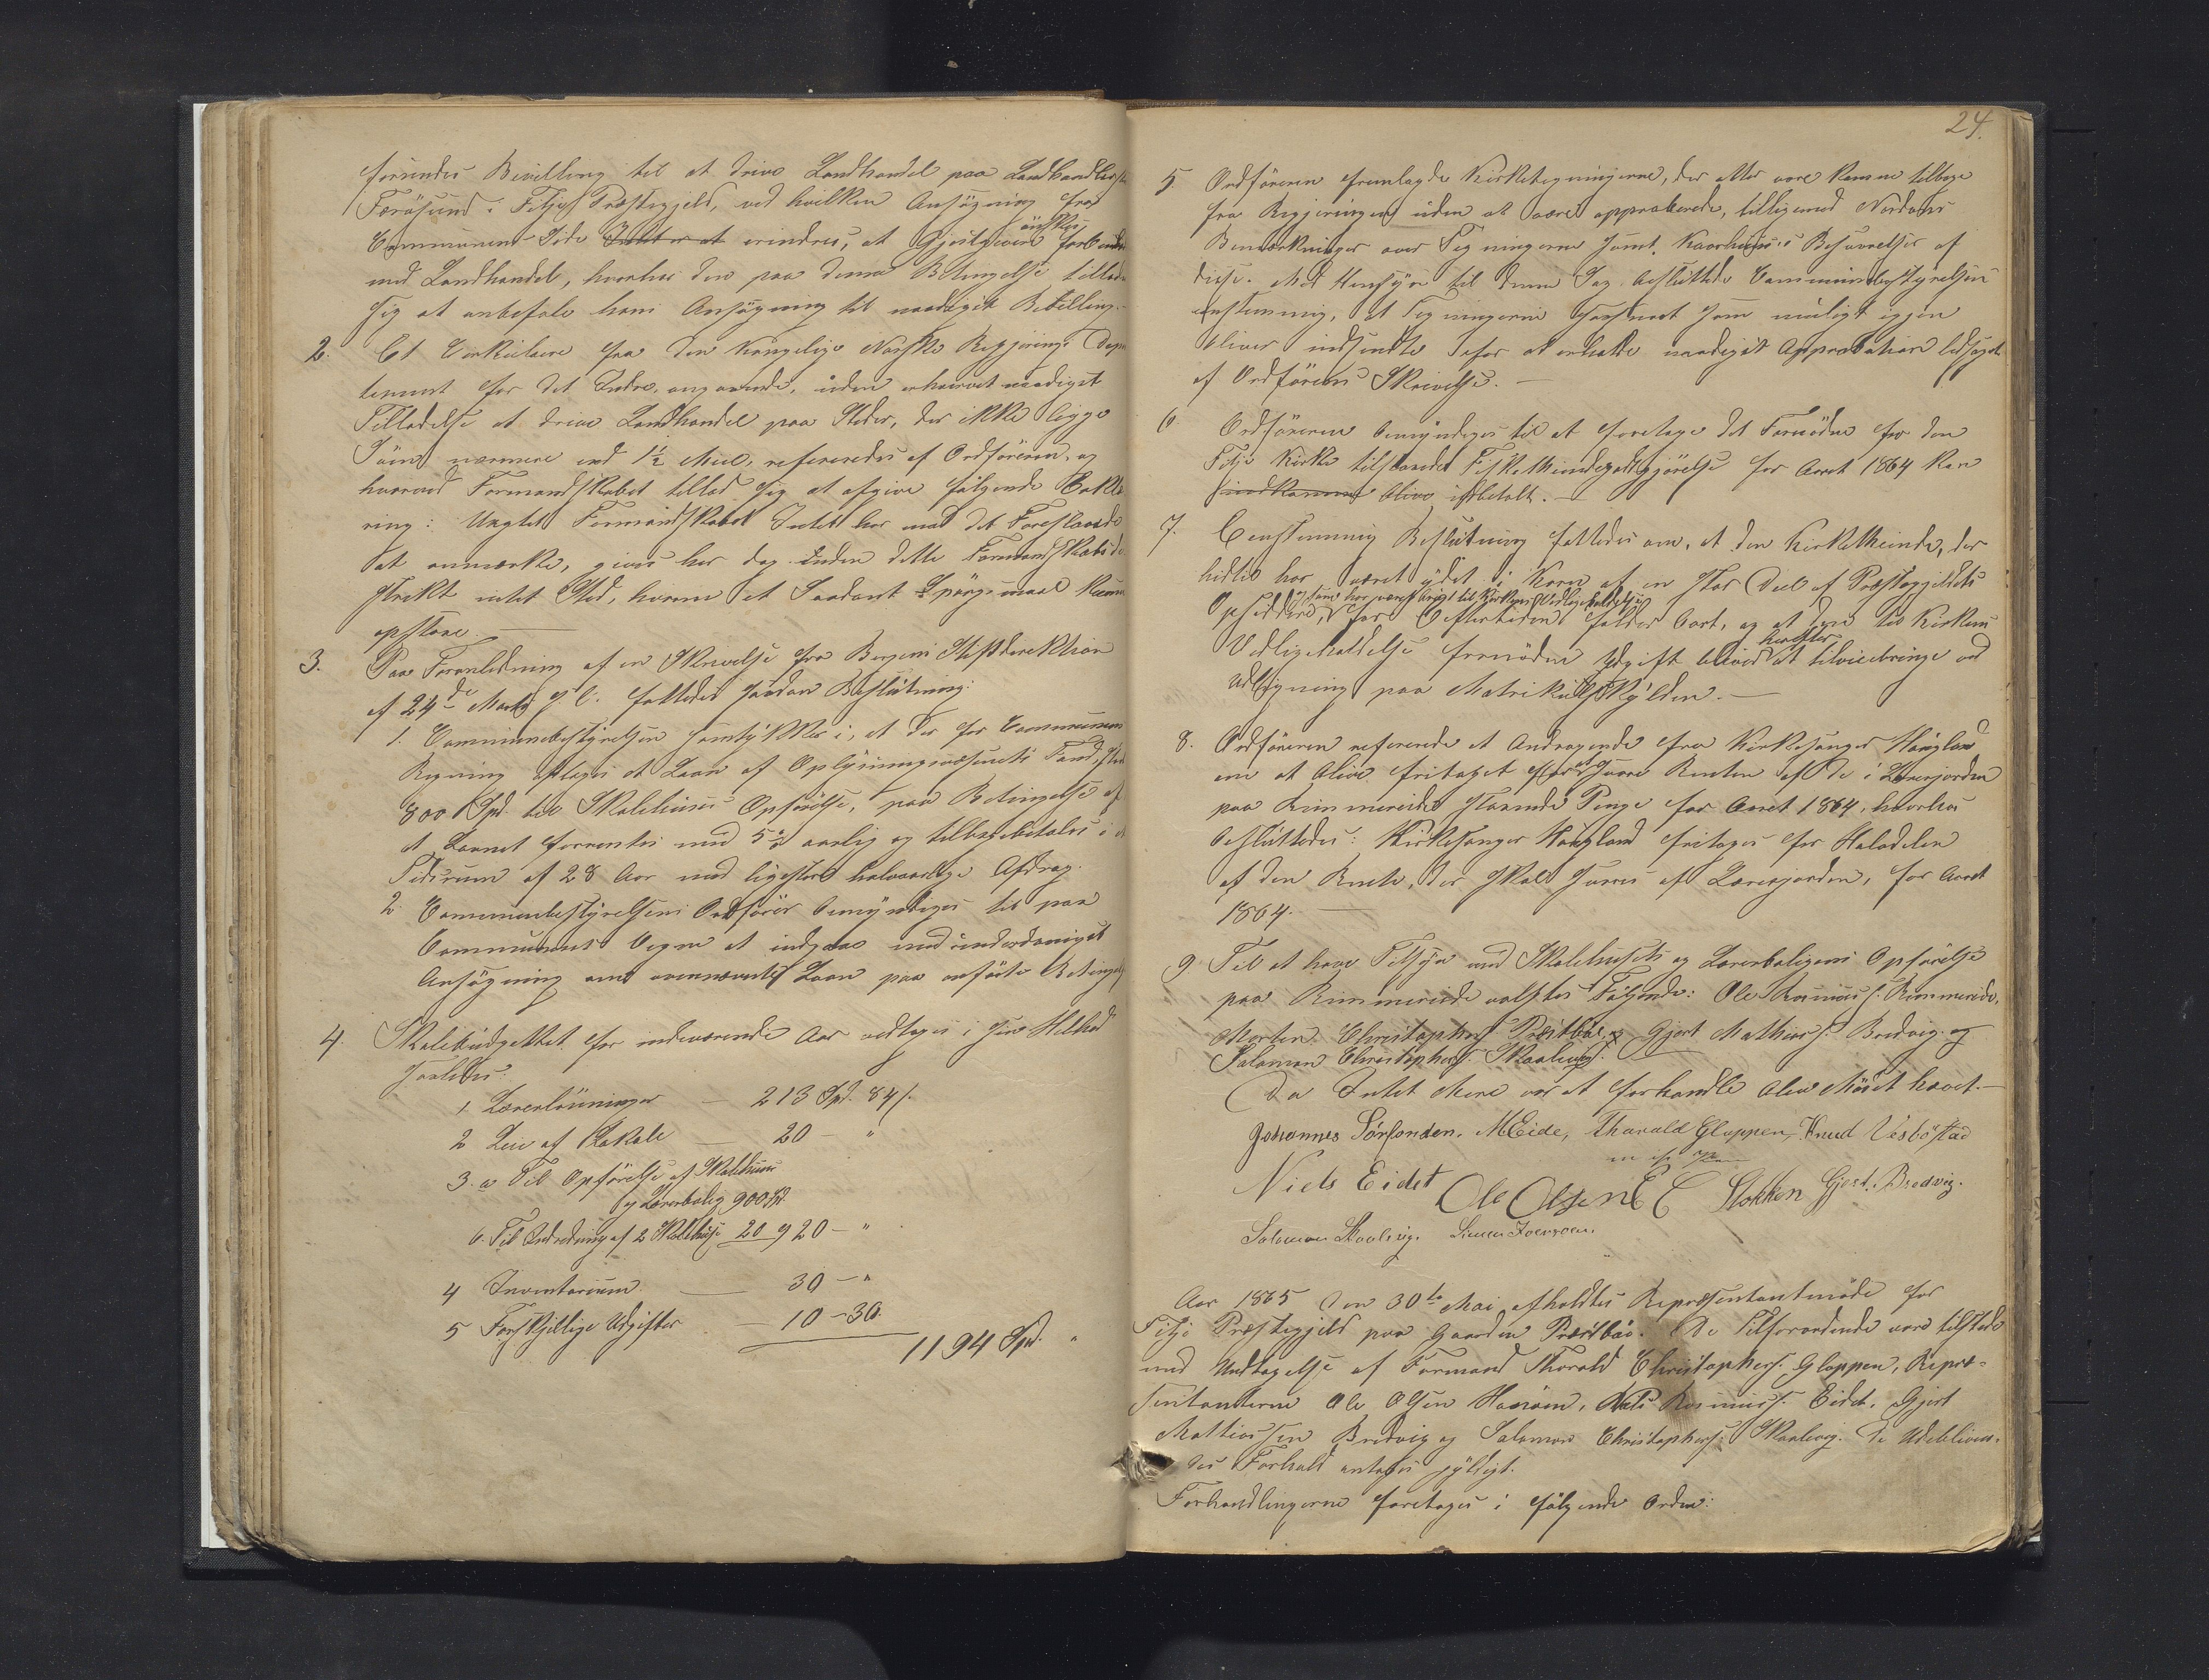 forundes Bevilling til at drive Landhandel paa Landhandlersted
Færøsund i Fitje Præstegjeld, ved hvilken Ansøgning fra
Communens Side Intet er at erindres, at Gjæstgiveri ønskes forbundet
med Landhandel, hvorhos den paa denne Betingelse tillader
sig at anbefale hans Ansøgning til naadigst Bevilling.
2. Et Cirkulære fra den Kongelige Norske Regjerings Depar
tement for det Indre, angaaende, uden erhvervet naadigst
Tilladelse at drive Landhandel paa Steder, der ikke ligge
Søen nærmere end 1½ Miil, refereredes af Ordføreren, og
hvorved Formandskabet tillod sig at afgive følgende Erklæ
ring: Uagtet Formandskabet Intet har mod det Foreslaaede
at anmærke, gives her dog inden dette Formandskabsdi
strikt intet Sted, hvorom et Saadant Spørgsmaal kunne
opstaae.
3. Paa Foranledning af en Skrivelse fra Bergens Stiftsdirektion
af 24de Marts d. A. fattedes saadan Beslutning:
1. Communebestyrelsen samtykker i, at der for Communens
Regning optages et Laan af Oplysningsvæsenets Fond, stort
800 Spd. til Skolehuses Opførelse, paa Betingelse af
at Laanet forrentes med 5 % aarlig og tilbagebetales i et
Tidsrum af 28 Aar med ligestore halvaarlige Afdrag.
2. Communebestyrelsens Ordfører bemyndiges til paa
Communens Vegne at indgaae med underdanigst
Ansøgning om ovennævnte Laan paa anførte Betingelser
4. Skolebudgettet for indeværende Aar vedtoges i sin Helhed
saaledes:
1. Lærerlønninger — 213 Spd. 84 s.
2 Leie af Lokale — 20 — "
3. a Til Opførelse af Skolehuus
og Lærerbolig 900 Spd.
b. Til Indredning af 2 Skolehuse 20 920 — "
4 Inventarium — 30 — "
5 Forskjellige Udgifter — 10 — 36
1194 Spd. "
24.
5 Ordføreren fremlagde Kirketegningerne, der atter vare komne tilbage
fra Regjeringen uden at være approberede, tilligemed Nordans
Bemærkninger over Tegningerne samt Kaarhuus's Besvarelse af
disse. Med Hensyn til denne Sag besluttede Communebestyrelsen
eenstemmig, at Tegningerne snarest som muligt igjen
bliver indsendte for at erholde naadigst Approbation ledsaget
af Ordførens Skrivelse. —
6 Ordføreren bemyndiges til at foretage det Fornødne for den
Fitje Kirke tilstaaede Fisketiendegodtgjørelse for Aaret 1864 kan
indkomme blive udbetalt. —
7. Eenstemmig Beslutning fattedes om, at den Kirketiende, der
hidtil har været ydet i Korn af en stor Deel af Præstegjeldets
Opsiddere, og som har været brugt til Kirkens Vedligeholdelse, for Eftertiden falder bort, og at den til Kirkens
Vedligeholdelse fornødne Udgift bliver herefter at tilveiebringe ved
Udligning paa Matrikulskylden. —
8. Ordføreren refererede et Andragende fra Kirkesanger Haugland
om at blive fritaget for at svare Renten af de i Lærerjorden
paa Rimmereide staaende Penge for Aaret 1864, hvorhos
besluttedes: Kirkesanger Haugland fritages for Halvdelen
af den Rente, der skal svares af Lærerjorden, for Aaret
1864. —
9. Til at have Tilsyn med Skolehusets og Lærerboligens Opførelse
paa Rimmereide valgtes Følgende: Ole Rasmuss. Rimmereide,
Morten Christophers. Præstbøe, Gjert Mathiass. Bredvig og
Salomon Christophers. Skaalevig.
Da Intet Mere var at forhandle blev Mødet hævet. —
Johannes Sørfonden. M Eide, Tharald Gloppen, Knud Vesbøstad
m f Pen
Niels Eidet Ole Olsen E C Stokken Gjert. Bredvig.
Salomon Skaalevig. Simen Iversen.
Aar 1865 den 30te Mai afholdtes Repræsentantmøde for
Fitje Præstegjeld paa Gaarden Præstbøe. De Tilforordnede vare tilstede
med Undtagelse af Formand Tharald Christophers. Gloppen, Repræ-
sentanterne Ole Olsen Havøen, Niels Rasmuss. Eidet, Gjert
Mathiassen Bredvig og Salomon Christophers. Skaalevig. De Udebliven-
des Forfald antoges gyldigt.
Forhandlingerne foretoges i følgende Orden: